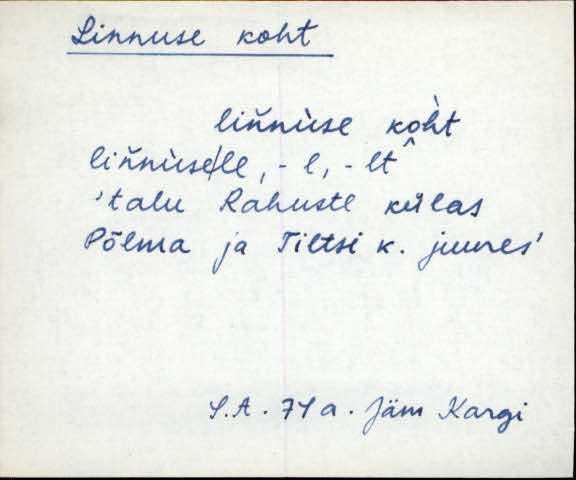 Linnuse koht
liňnùse kòht
liňnùse|le, - l, - lt
'talu Rahuste külas
Põlma ja Tiltsi k. juures'
S.A. 71a. Jäm Kargi